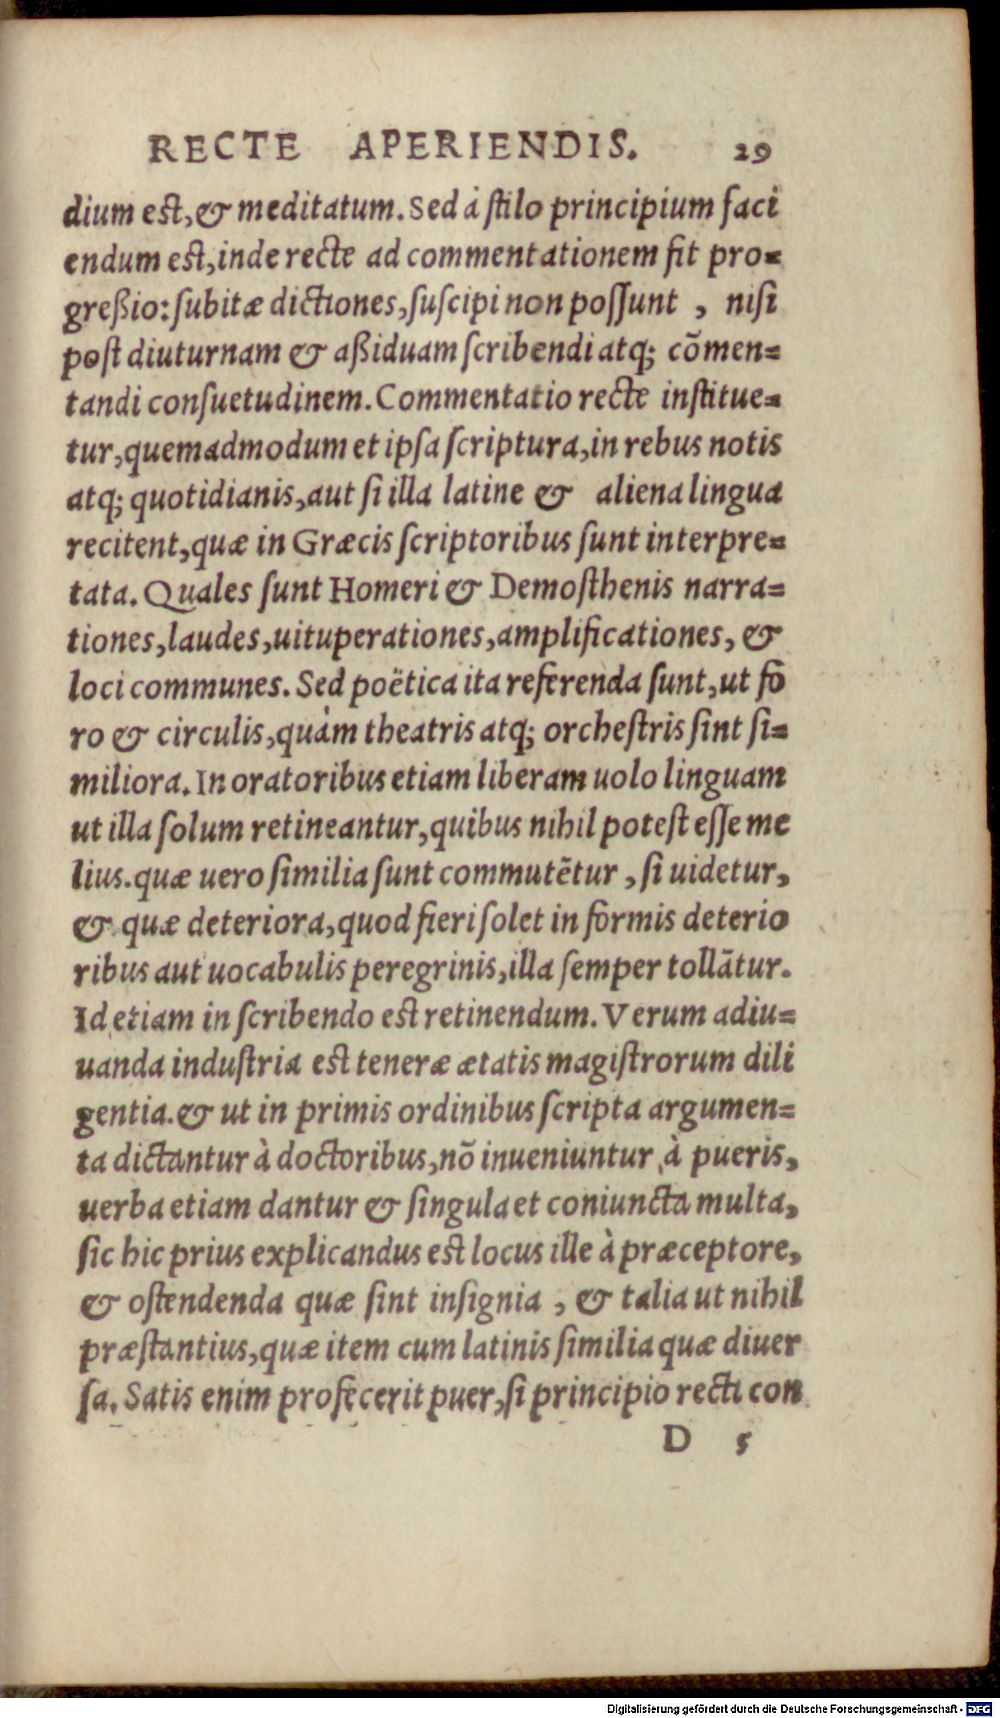 RECTE APERIENDIS. 29
dium est, & meditatum. Sed à stilo principium faci
endum est, inde recte ad commentationem fit pro-
greßio: subitæ dictiones, suscipi non possunt , nisi
post diuturnam & aßiduam scribendi atq; cõmen-
tandi consuetudinem. Commentatio recte institue-
tur, quemadmodum et ipsa scriptura, in rebus notis
atq; quotidianis, aut si illa latine & aliena lingua
recitent, quæ in Græcis scriptoribus sunt interpre-
tata. Quales sunt Homeri & Demosthenis narra-
tiones, laudes, uituperationes, amplificationes, &
loci communes. Sed poëtica ita referenda sunt, ut fo
ro & circulis, quàm theatris atq; orchestris sint si-
miliora. In oratoribus etiam liberam uolo linguam
ut illa solum retineantur, quibus nihil potest esse me
lius. quæ uero similia sunt commutẽtur , si uidetur,
& quæ deteriora, quod fieri solet in formis deterio
ribus aut uocabulis peregrinis, illa semper tollãtur.
Id etiam in scribendo est retinendum. Verum adiu-
uanda industria est teneræ ætatis magistrorum dili
gentia. & ut in primis ordinibus scripta argumen-
ta dictantur à doctoribus, nõ inueniuntur à pueris,
uerba etiam dantur & singula et coniuncta multa,
sic hic prius explicandus est locus ille à præceptore,
& ostendenda quæ sint insignia , & talia ut nihil
præstantius, quæ item cum latinis similia quæ diuer
sa. Satis enim profecerit puer, si principio recti con
D 5
Digitalisierung gefördert durch die Deutsche Forschungsgemeinschaft - DFG